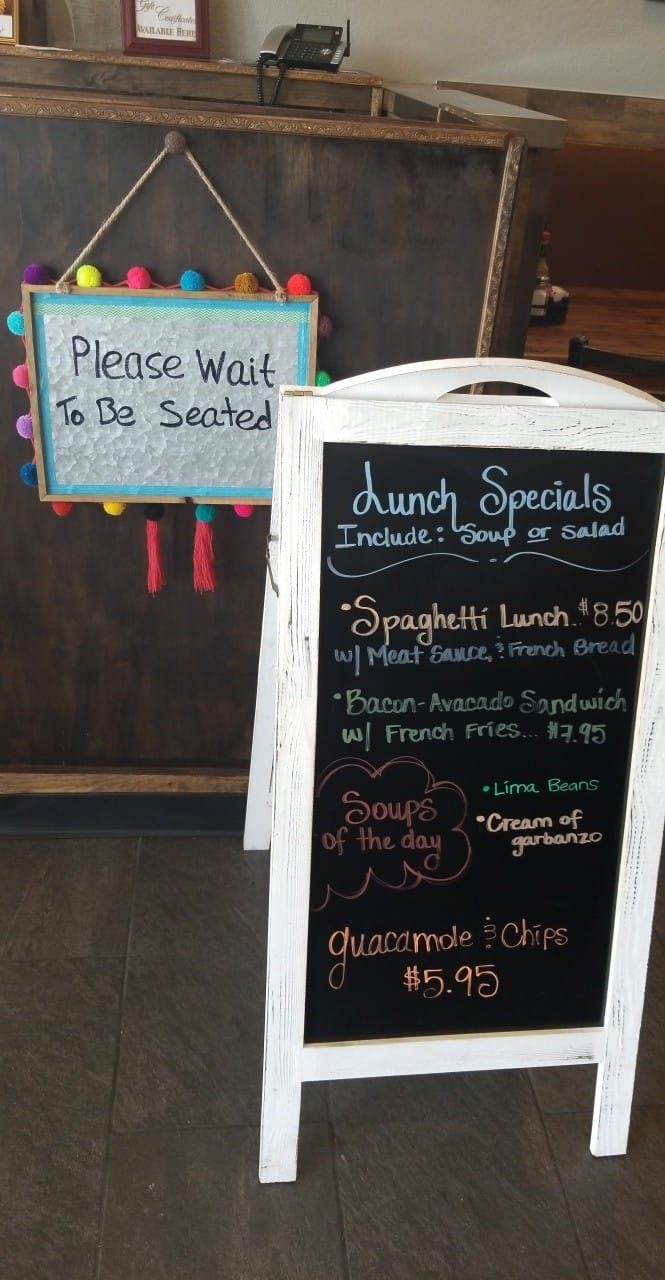 Gift
Certificates
AVAILABLE HERE
Please Wait
To Be Seated
Lunch Specials
Include: Soup or Salad
•Spaghetti Lunch..$8.50
w/ Meat Sauce, & French Bread
•Bacon-Avacado Sandwich
w/ French Fries... $7.95
Soups
of the day
•Lima Beans
•Cream of
garbanzo
guacamole & Chips
$5.95